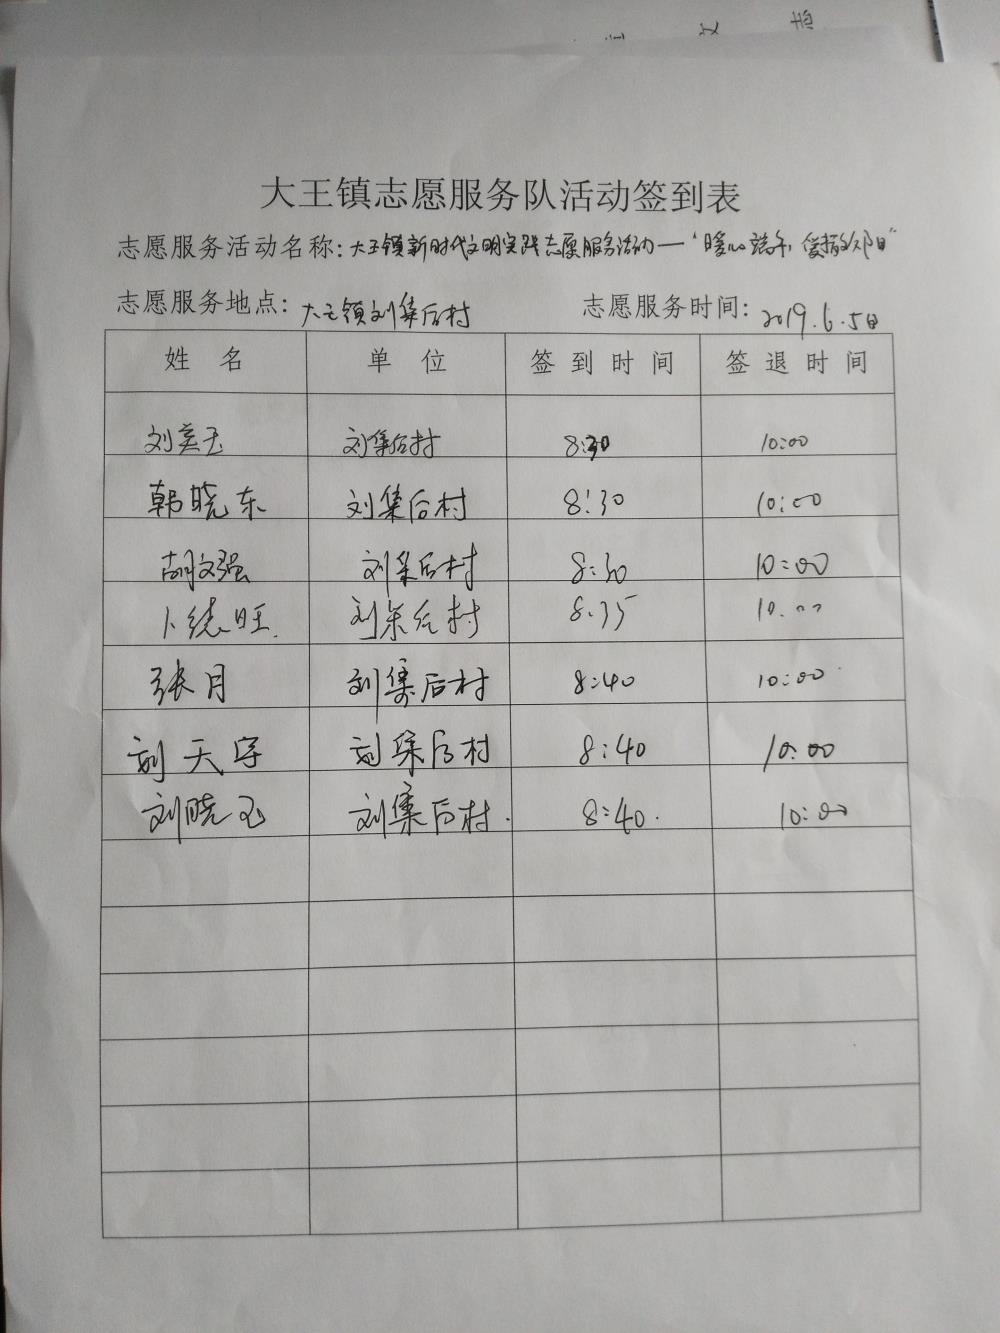 大王镇志愿服务队活动签到表
志愿服务活动名称：大王镇新时代文明实践志愿服务活动—“暖心端午，爱撒夕阳”
志愿服务地点：大王镇刘集后村 志愿服务时间：2019.6.5日
姓名 单位 签到时间 签退时间
刘奕玉 刘集后村 8:30 10:00
韩晓东 刘集后村 8:30 10:00
胡文强 刘集后村 8:30 10:00
卜 旺 刘集后村 8:35 10:00
张月 刘集后村 8:40 10:00
刘天宇 刘集后村 8:40 10:00
刘晓玉 刘集后村. 8:40. 10:00